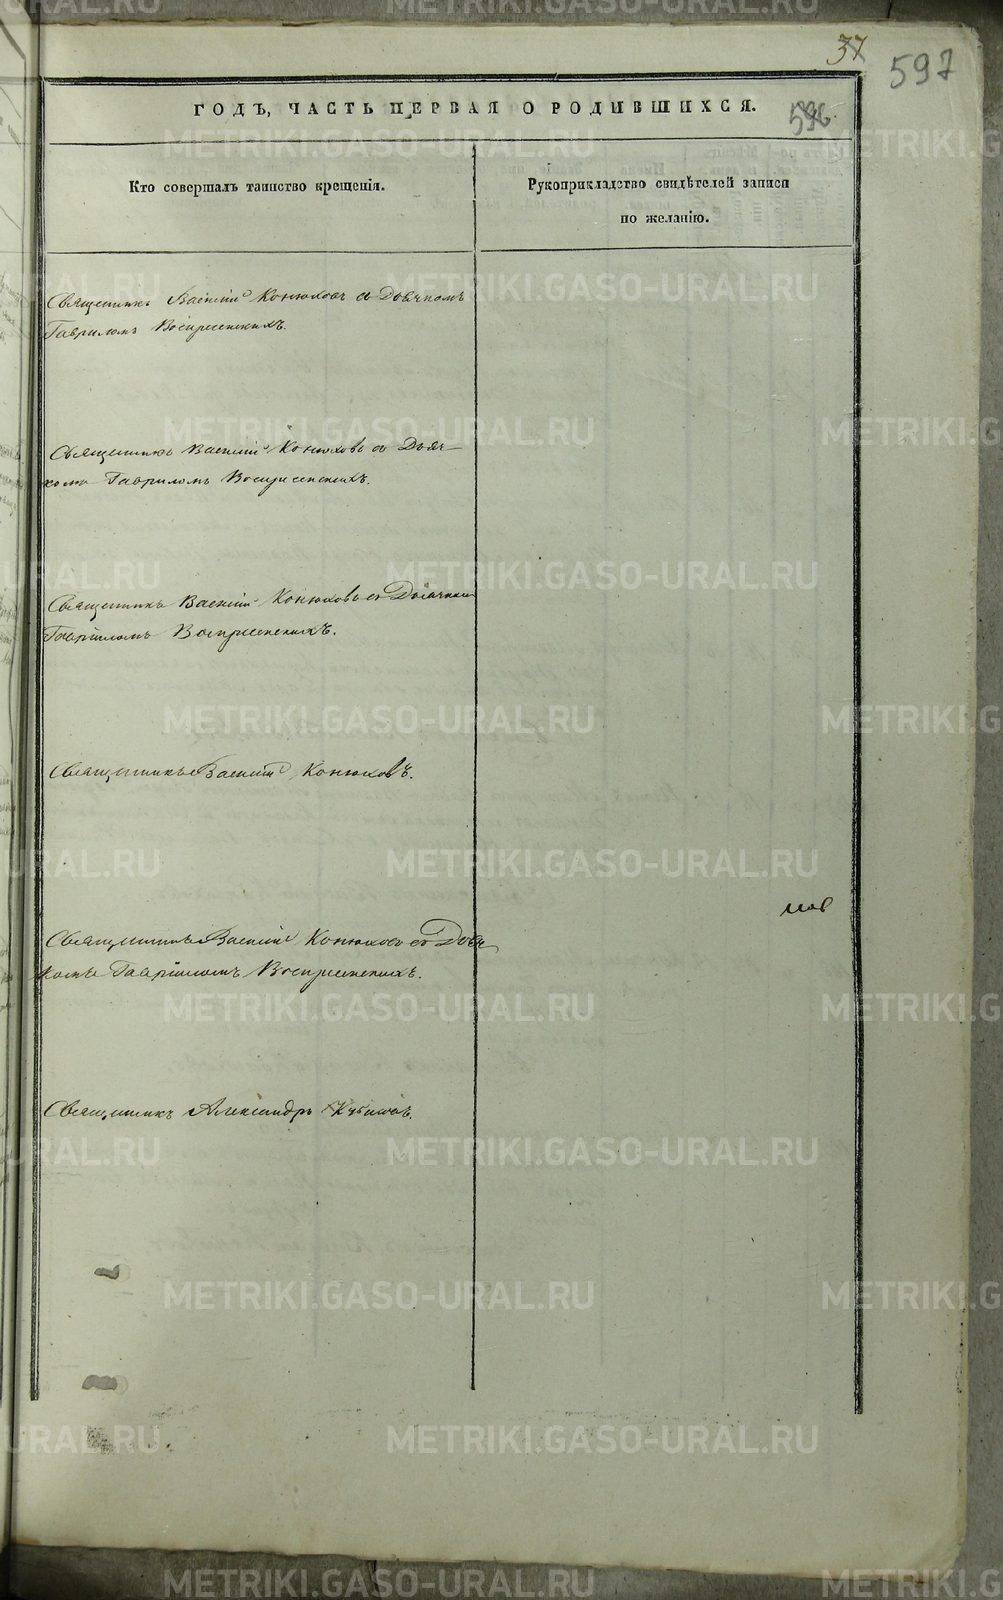 37
597
ГОДЪ, ЧАСТЬ ПЕРВАЯ О РОДИВШИХСЯ.
596
Кто совершалъ таинство крещенія.
Рукоприкладство свидѣтелей записи
по желанію.
Священникъ Василій Конюховъ съ Дьячкомъ
Гавриломъ Воскресенскихъ.
Священникъ Василій Конюховъ съ Дьяч-
комъ Гавриломъ Воскресенскихъ.
Священникъ Василій Конюховъ съ Дьячкомъ
Гавріиломъ Воскресенскихъ.
Священникъ Василій Конюховъ.
Священникъ Василій Конюховъ съ Дьяч
комъ Гавріиломъ Воскресенскихъ.
Священникъ Александръ
METRIKI.GASO-URAL.RU